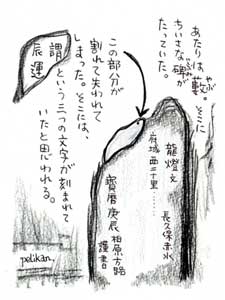 あたりは、藪。そこに
ちいさな碑が
たっていた。
この部分が
割れて失われて
しまった。そこには、
謂
辰運
という三つの文字が刻まれて
いたと思われる。
龍燈文
長久保赤水
府城西二十里……
寳暦庚辰 柏原方路
謹書
pelikan.